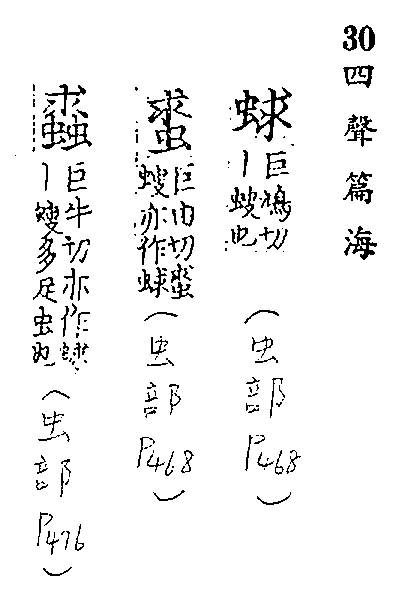 30四聲篇海
蛷巨鳩切丨螋也(虫部P468)
蛷巨由切蛷螋亦作蛷(虫部P468)
蟗巨牛切亦作蛷丨螋多足虫也(虫部P476)